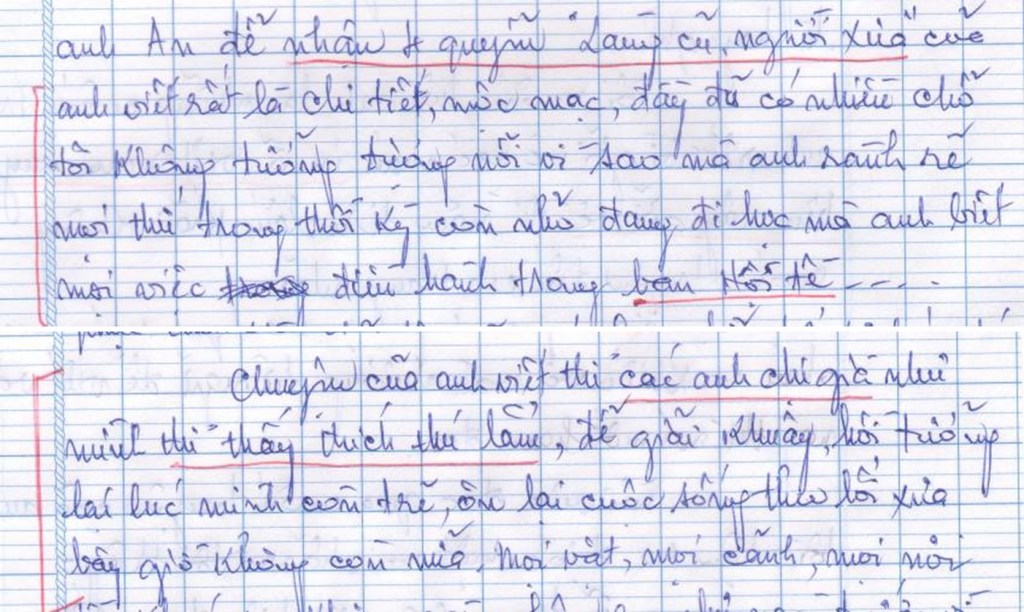 anh An để nhận 4 quyển Làng cũ, người xưa của
anh viết rất là chi tiết, mộc mạc, đầy đủ có nhiều chỗ
tôi không tưởng tượng nỗi vì sao mà anh rành rẽ
mọi thứ trong thời kỳ còn nhỏ đang đi học mà anh biết
mọi việc điều hành trong ban Hội tề ----.
Chuyện của anh viết thì các anh chị già như
mình thì thấy thích thú lắm, để giải khuây, hồi tưởng
lại lúc mình còn trẻ, ôn lại cuộc sống theo lối xưa
bây giờ không còn nữa. Mọi vật, mọi cảnh, mọi nơi